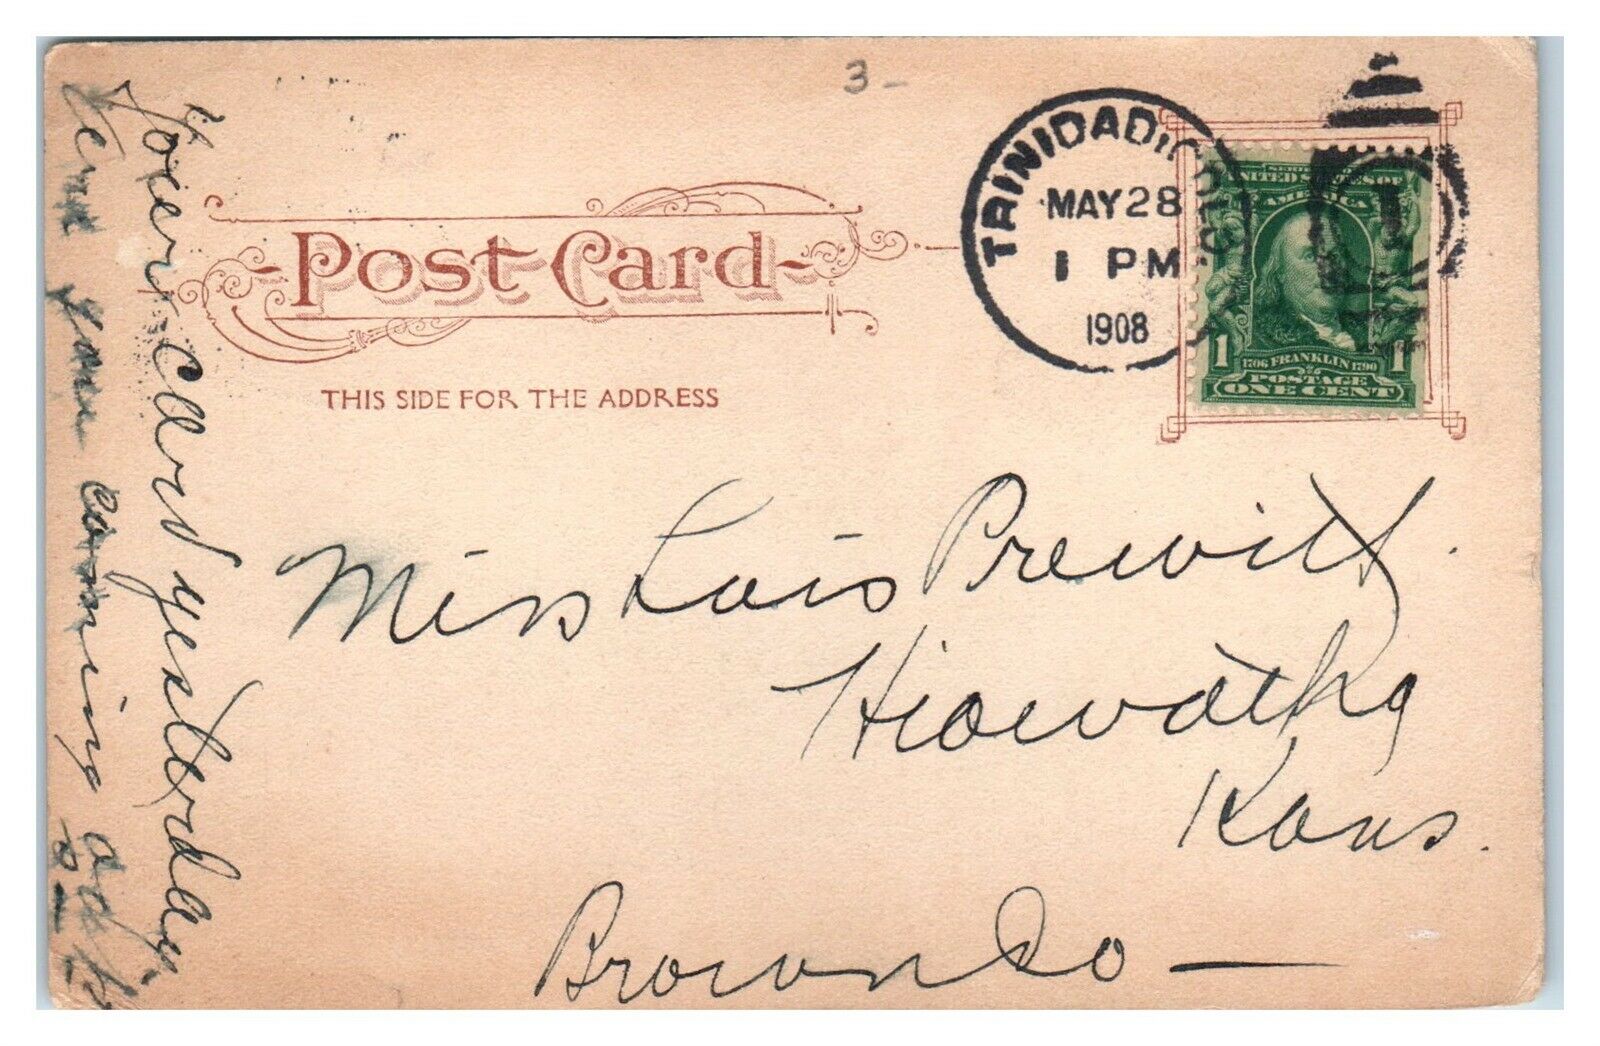 3-
TRINIDAD, COLO.
MAY 28
1 PM
1908
1
SERIES
UNITED STATES OF
AMERICA
1706 FRANKLIN 1790
POSTAGE
1 1
ONE CENT
Post Card
THIS SIDE FOR THE ADDRESS
Miss Lois Prewitt.
Hiawatha
Kans.
Brown Co —
card yesterday,
coming